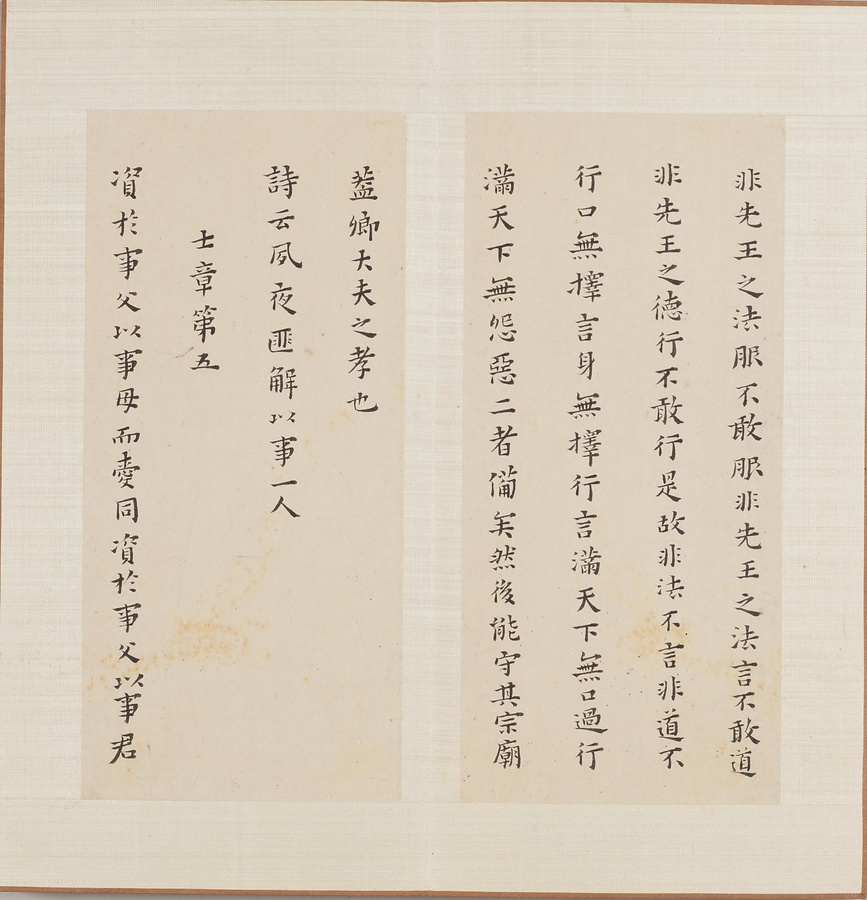 非先王之法服不敢服非先王之法言不敢道
非先王之德行不敢行是故非法不言非道不
行口無擇言身無擇行言滿天下無口過行
滿天下無怨惡二者備矣然後能守其宗廟
葢卿大夫之孝也
詩云夙夜匪解以事一人
士章第五
資於事父以事母而愛同資於事父以事君